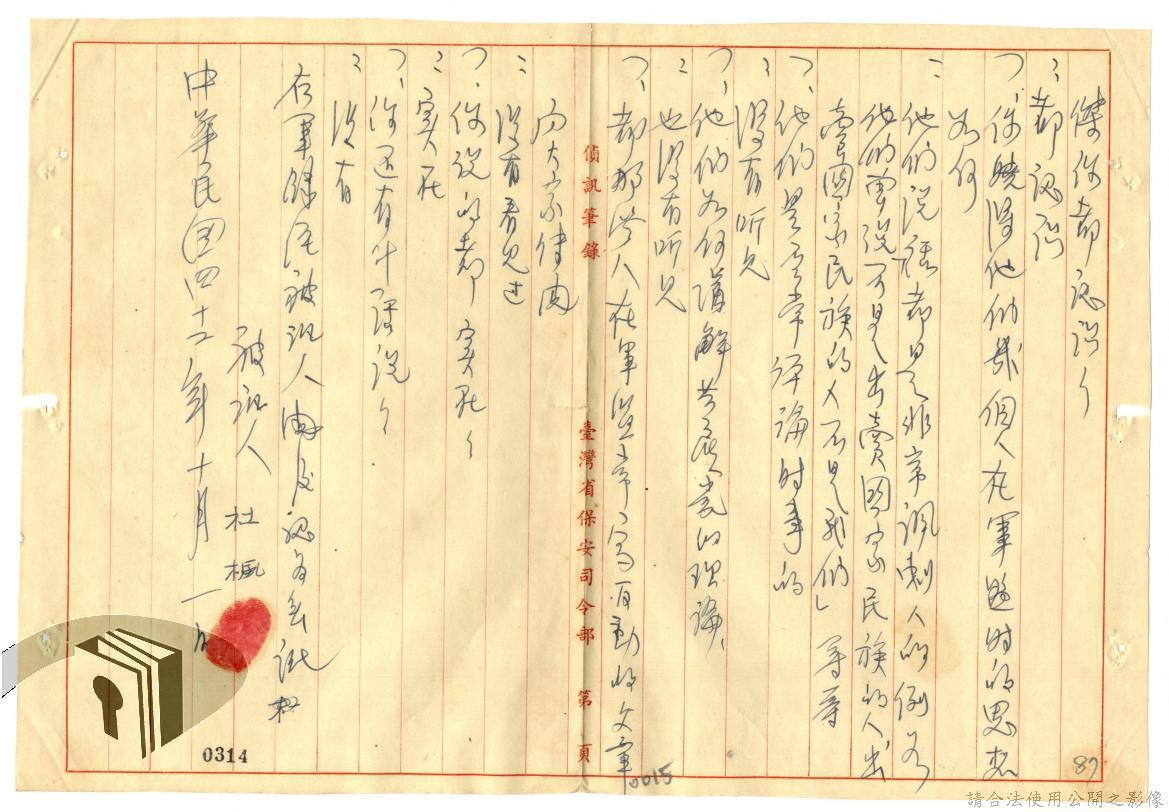 傑你都認識?
: 都認識
問、你曉得他們幾個人在軍監時的思想
如何
: 他們說話都是非常諷刺人的例如
他們曾說「可是出賣國家民族的人出
賣國家民族的人不是我們」等等
問、他們是否常評論時事的
: 沒有听見
問、他們如何講解共產党的理論、
: 也沒有听見
問、都那些人在軍監常寫有動性文章
向大家傳閱
: 沒有看見过
問、你說的都实在?
: 实在
問、你还有什麼說?
: 沒有
右筆錄經被訊人閱後認為無訛
被訊人 杜楓
中華民國四十二年十月一日
偵訊筆錄 臺灣省保安司令部 第 頁
0314
0015
87
請合法使用公開之影像